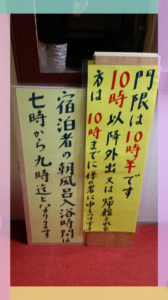 門限は10時半です
10時以降外出又は帰館される
方は10時までに係の者に申しつけ下さい
宿泊者の朝風呂入浴時間は
七時から九時迄となります